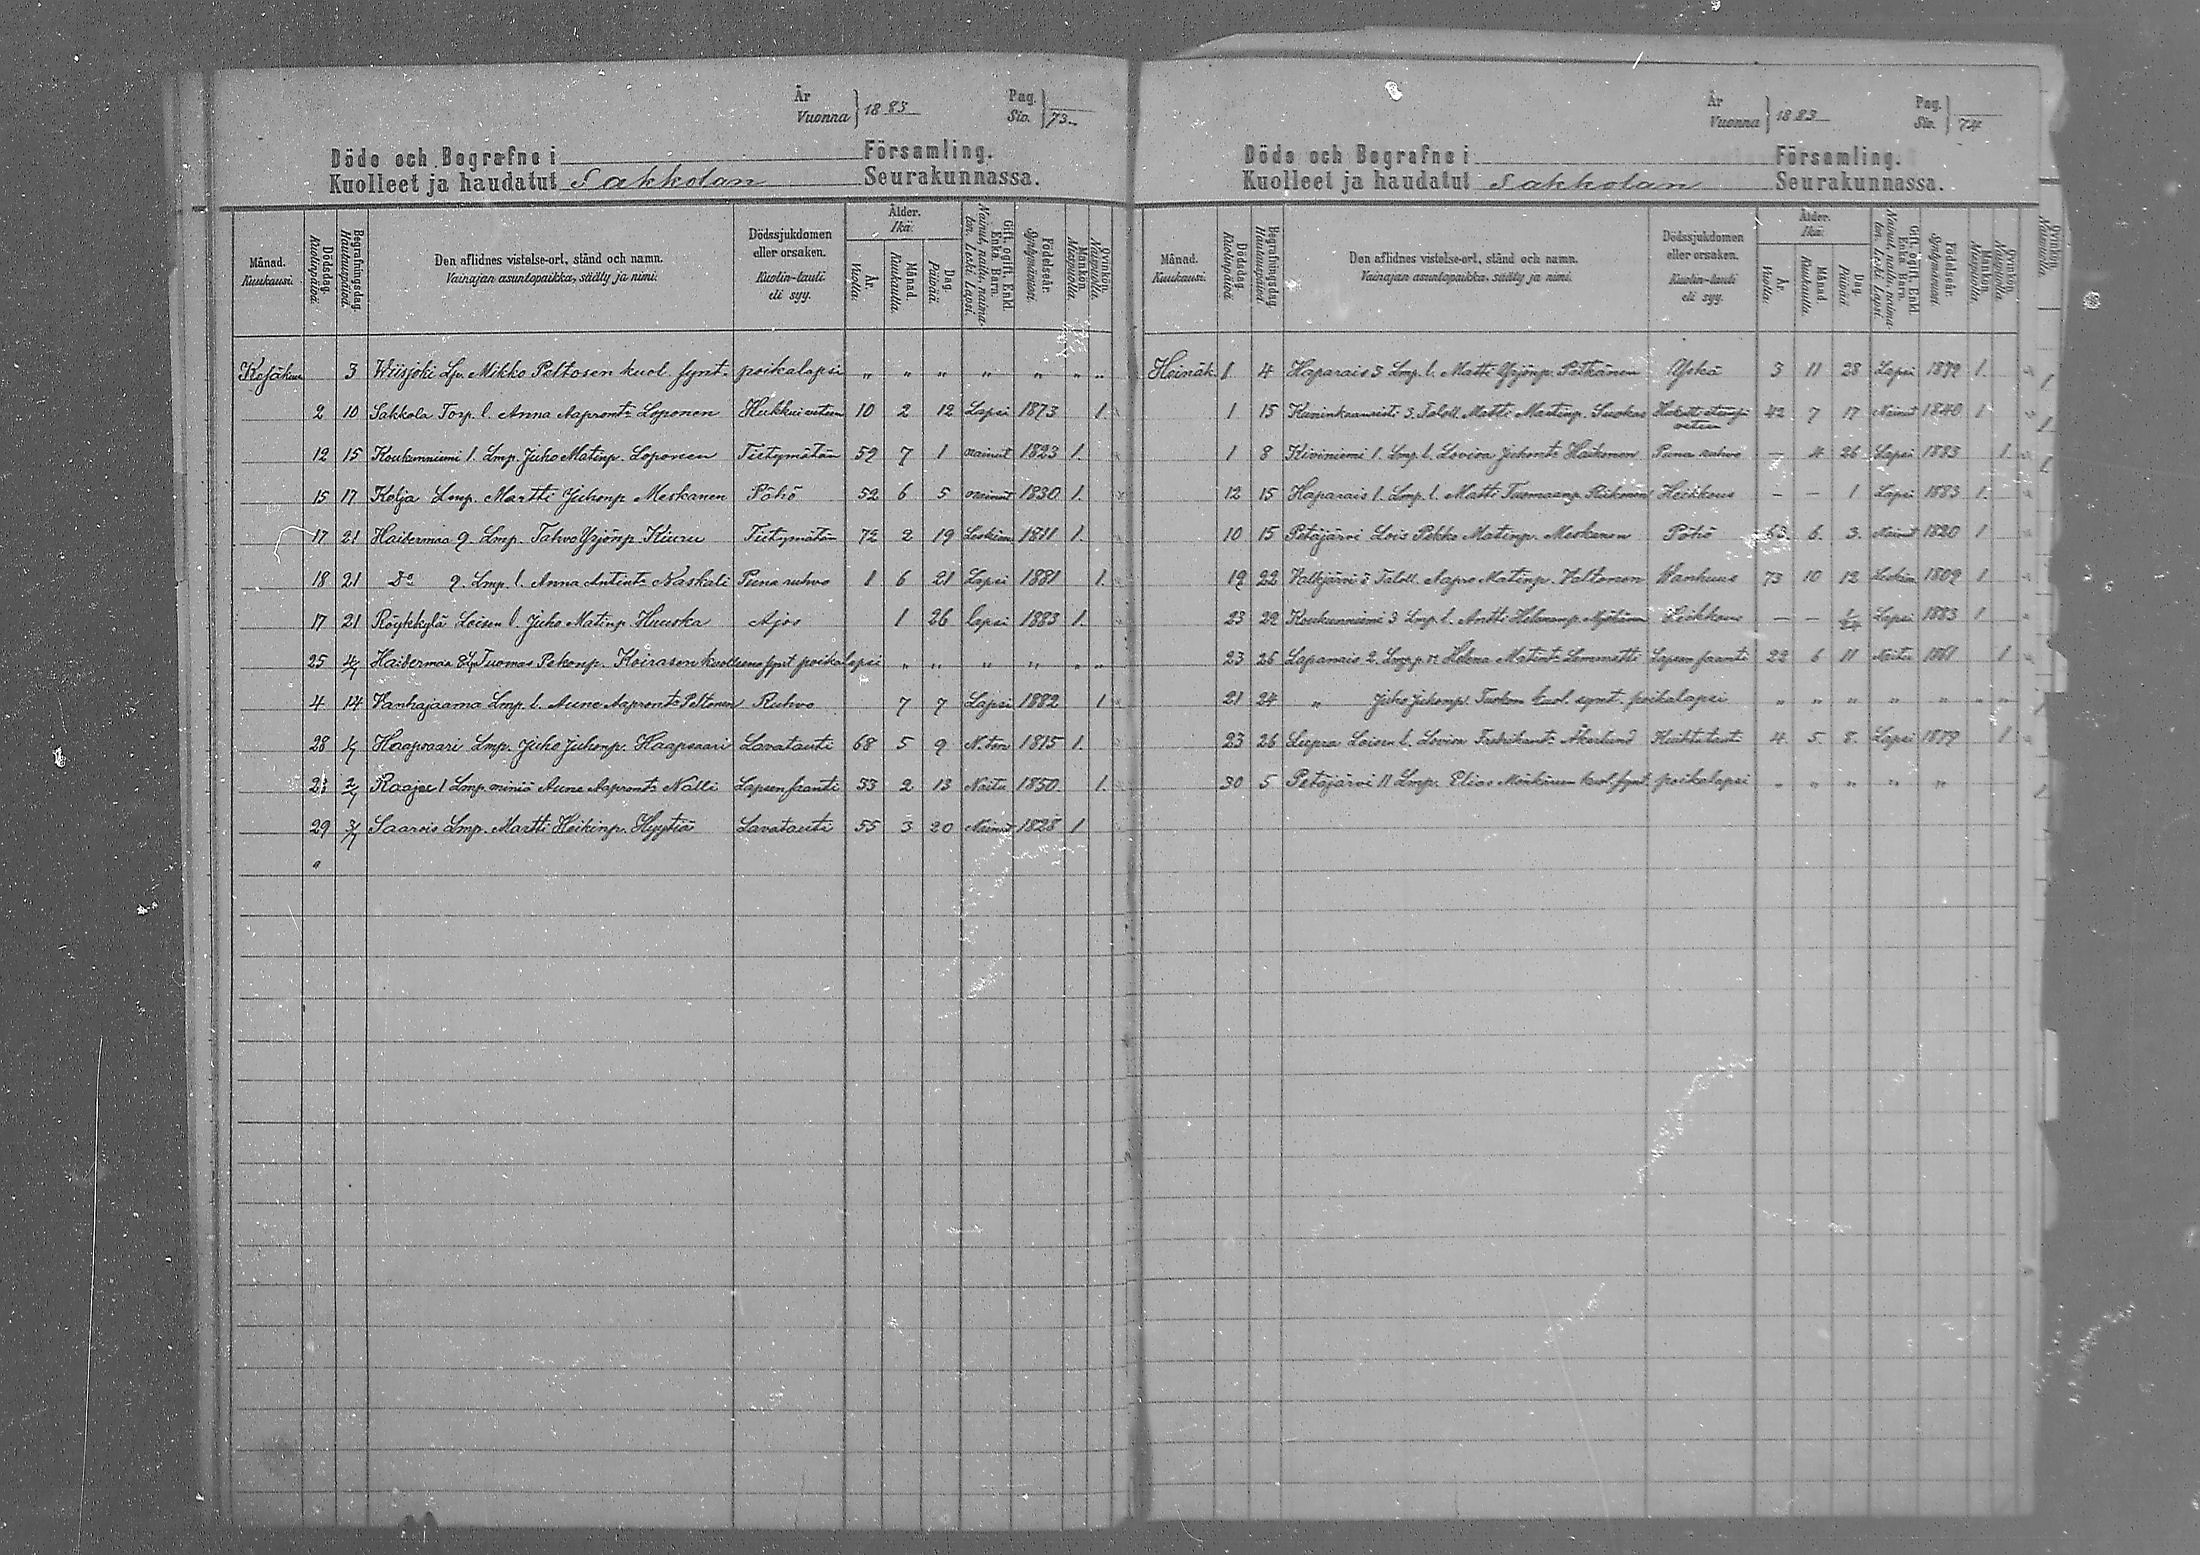 År
Vuonna } 1883
Pag.
Siv. } 73.
Döde och Begrafne i Församling.
Kuolleet ja haudatut Sakkolan Seurakunnassa.
Månad. Kuukausi.
Dödsdag. Kuolinpäivä.
Begrafningsdag. Hautauspäivä.
Den aflidnes vistelse-ort, stånd och namn.
Vainajan asuntopaikka, sääty ja nimi.
Dödssjukdomen eller orsaken.
Kuolin-tauti eli syy.
Ålder. Ikä.
År. Vuotta.
Månad. Kuukautta.
Dag. Päivää.
Gift, ogift, Enkl. Enka. Barn.
Nainut, naima- ton. Leski. Lapsi.
Födelseår. Syntymävuosi.
Mankön. Miespuolta.
Qvinkön. Naispuolta.
Kesäkuu 3 Wiisjoki Mikko Peltosen kuol. synt. poikalapsi " " " " " " "
2 10 Sakkola Torp. l. Anna Aapront. Loponen Hukkui veteen 10 2 12 Lapsi 1873 1.
12 15 Koukunniemi 1. Lmp. Juho Matinp. Loponen Tietymätön 59 7 1 nainut 1823 1.
15 17 Kelja Lmp. Martti Juhonp. Meskanen Pöhö 52 6 5 nainut 1830 1.
17 21 Haitermaa 9. Lmp. Tahvo Yrjönp. Kiuru Tietymätön 72 2 19 Leskim 1811 1.
18 21 Do 9. Lmp. l. Anna Antint. Naskali Puna ruhvo 1 6 21 Lapsi 1881 1.
17 21 Röykkylä Loisen l. Juho Matinp. Huuska Ajos 1 26 lapsi 1883 1.
25 4/7 Haitermaa 8 Tuomas Pekonp. Koirasen kuolleena synt poikalapsi " " " " " "
4 14 Vanhajaama Lmp. l. Aune Aapront. Peltonen Ruhvo 7 7 Lapsi 1882 1
28 1/7 Haapsaari Lmp. Juho Juhonp. Haapsaari Lavatauti 68 5 9 N.ton 1815 1.
23 2/7 Raajae 1 Lmp. miniä Aune Aapront. Nalli Lapsen santi 33 2 13 Naitu 1850 1.
29 3/7 Saarois Lmp. Martti Heikinp. Hyytiä Lavatauti 55 3 20 Nainut 1828 1
År
Vuonna } 1883
Pag.
Siv. } 74
Döde och Begrafne i Församling.
Kuolleet ja haudatut Sakkolan Seurakunnassa.
Månad. Kuukausi.
Dödsdag. Kuolinpäivä.
Begrafningsdag. Hautauspäivä.
Den aflidnes vistelse-ort, stånd och namn.
Vainajan asuntopaikka, sääty ja nimi.
Dödssjukdomen eller orsaken.
Kuolin-tauti eli syy.
Ålder. Ikä.
År. Vuotta.
Månad. Kuukautta.
Dag. Päivää.
Gift, ogift, Enkl. Enka. Barn.
Nainut, naima- ton. Leski. Lapsi.
Födelseår. Syntymävuosi.
Mankön. Miespuolta.
Qvinkön. Naispuolta.
Heinäk. 1 4 Haparais 3 Lmp. l. Matti Yrjönp. Pitkänen Yskä 3 11 28 Lapsi 1879 1.
1 15 3. Taloll. Matti Martinp. Suokas veteen 42 7 17 Nainut 1840 1
1 8 Kiviniemi 1. Lmp. l. Loviisa Juhont. Haikonen Puna ruhvo – 4 26 Lapsi 1883 1.
12 15 Haparais 1. Lmp. l. Matti Tuomaanp. Riikonen Heikkous – – 1 Lapsi 1883 1.
10 15 Petäjärvi Lois Pekko Matinp. Meskanen Pöhö 63. 6. 3. Nainut 1820 1
19 22 Valkjärvi Taloll. Aapro Matinp. Valtonen Vanhuus 73 10 12 Leskim 1809 1
23 29 Koukunniemi 3 Lmp. l. Antti Heikkous – – Lapsi 1883 1
23 26 Lapanais 2. Helena Matint. Lemmetti Lapsen santi 22 6 11 Naitu 1861 1
21 24 " Juho Juhonp. kuol. synt. poikalapsi " " " " " " "
23 26 Loisen l. Loviisa Fredrikint. Åkerlund 4. 5. 8. Lapsi 1879 1
30 5 Petäjärvi 11 Lmp. Elias Mönkäreen kuol. synt. poikalapsi " " " " "